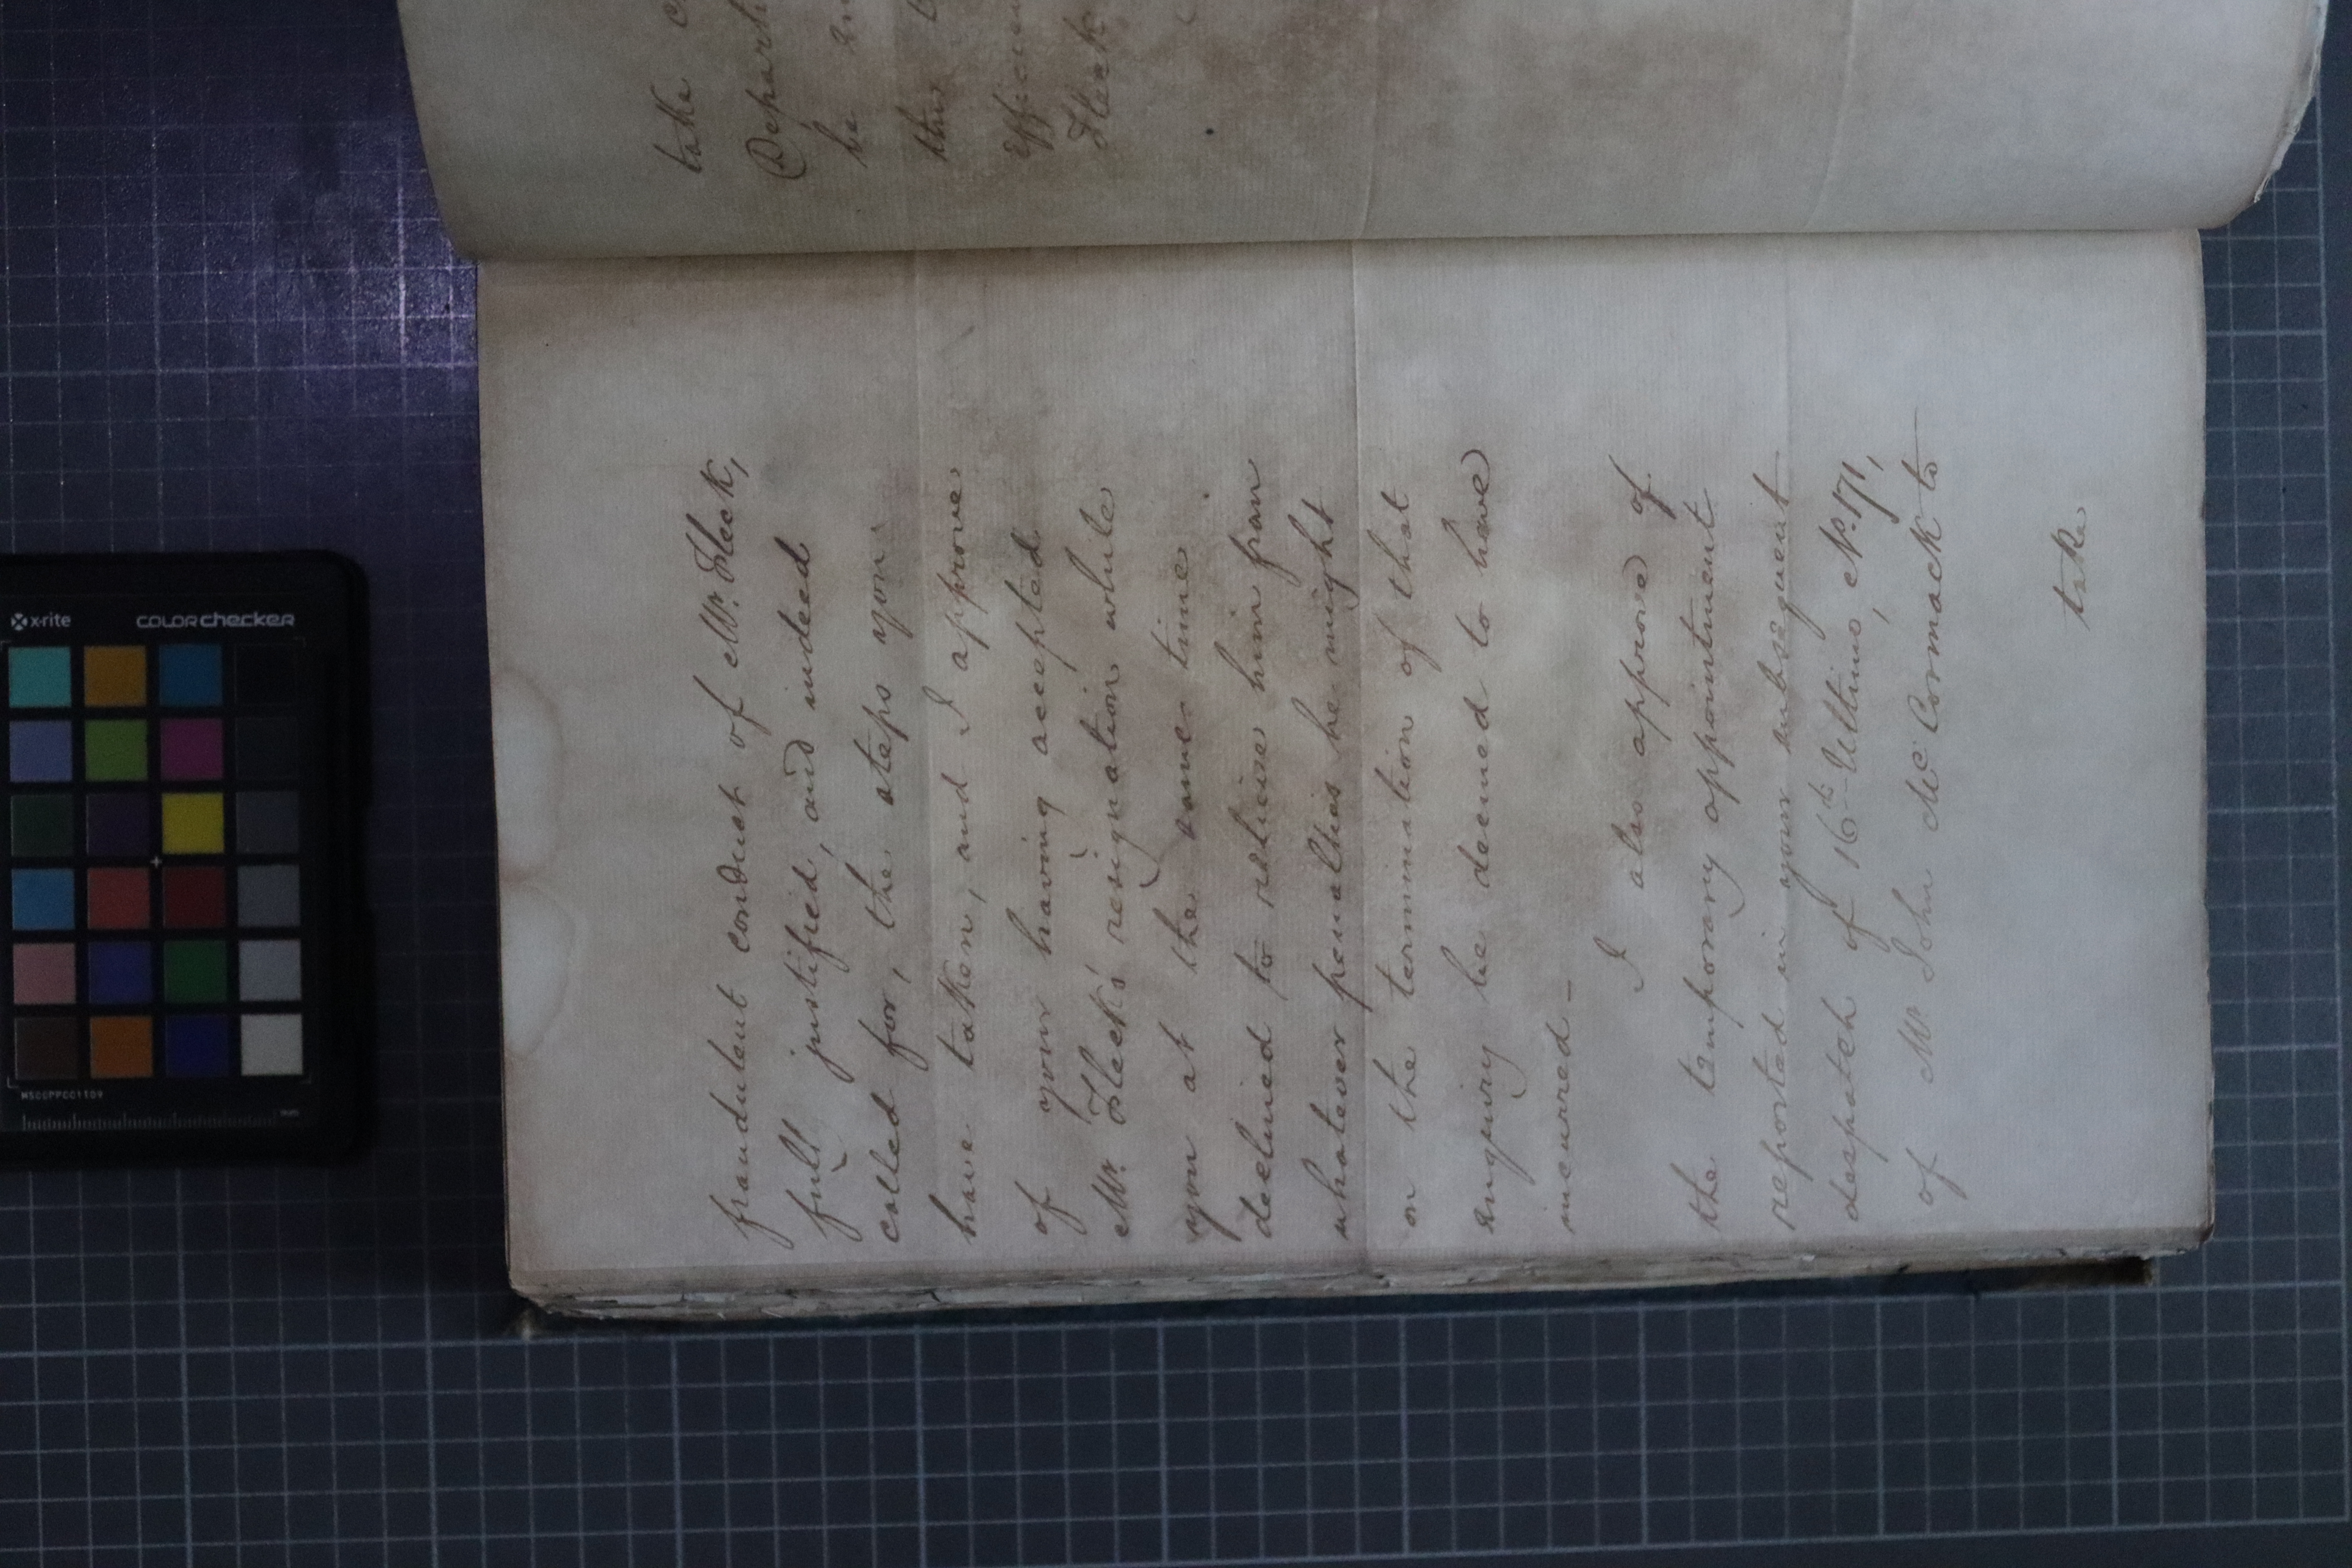 fraudulent conduct of Mr. Fleck,
full justified, and indeed
called for, the steps you
have taken, and I approve
of your having accepted
Mr. Fleck's resignation while
you at the same time
declined to relieve him from
whatever penalties he might
on the termination of that
enquiry be deemed to have
incurred_
I also approve of
the temporary appointment
reported in your subsequent
despatch of 16th Ultimo, No. 171,
of Mr John McCormack to
take
take
be
this
Fleck
x-rite
colorchecker
MSCCPPCC1109